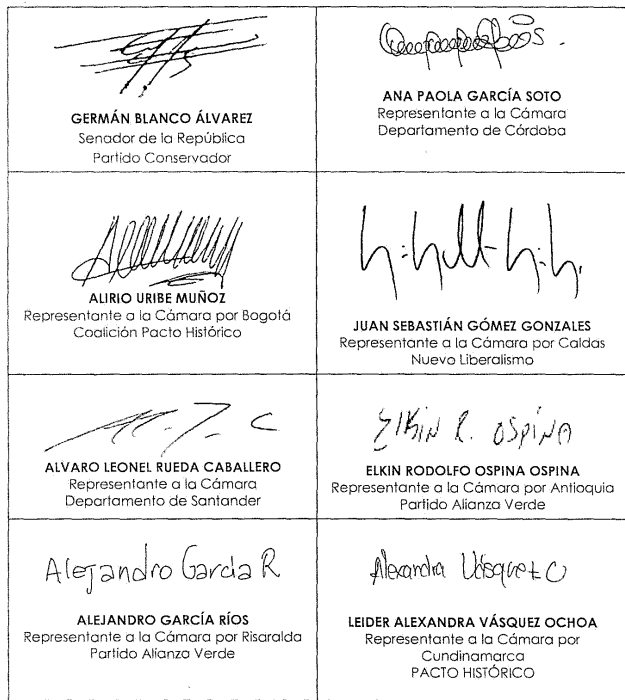 GERMÁN BLANCO ÁLVAREZ
Senador de la República
Partido Conservador
ANA PAOLA GARCÍA SOTO
Representante a la Cámara
Departamento de Córdoba
ALIRIO URIBE MUÑOZ
Representante a la Cámara por Bogotá
Coalición Pacto Histórico
JUAN SEBASTIÁN GÓMEZ GONZALES
Representante a la Cámara por Caldas
Nuevo Liberalismo
ALVARO LEONEL RUEDA CABALLERO
Representante a la Cámara
Departamento de Santander
Elkin R. OSPINA
ELKIN RODOLFO OSPINA OSPINA
Representante a la Cámara por Antioquia
Partido Alianza Verde
Alejandro García R
ALEJANDRO GARCÍA RÍOS
Representante a la Cámara por Risaralda
Partido Alianza Verde
Alexandra Vásquez O
LEIDER ALEXANDRA VÁSQUEZ OCHOA
Representante a la Cámara por
Cundinamarca
PACTO HISTÓRICO